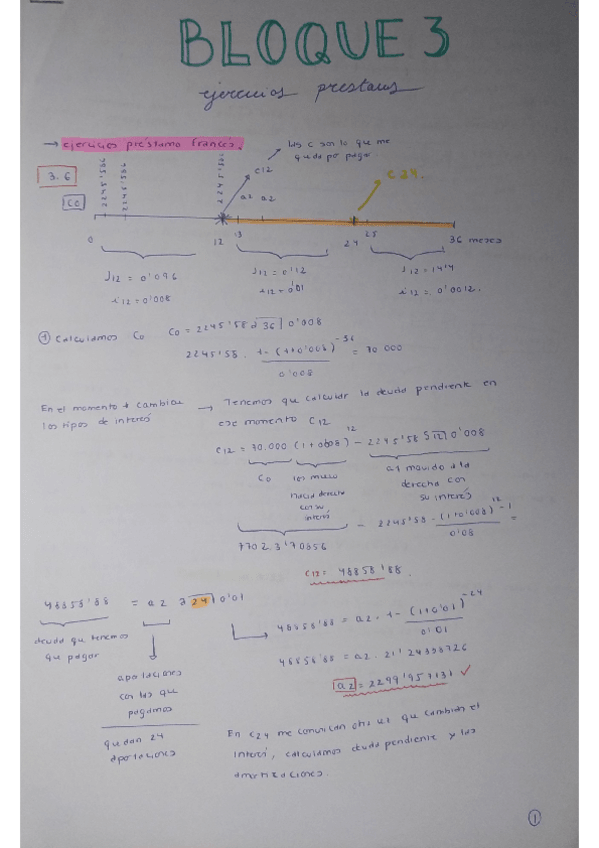 BLOQUE 3
ejercicios prestamos
→ ejercicios préstamo francés.
las c son lo que me
queda por pagar.
3.6
C0
2245'58
2245'58
2245'58
C12
C24.
a2 a2
0 12 13 24 25 36 meses
J12 = 0'096
i12 = 0'008
J12 = 0'12
i12 = 0'01
J12 = 14'4
i12 = 0'0012.
① Calculamos C0 C0 = 2245'58 a 36 0'008
2245'58 · 1-(1+0'008)^-36 / 0'008 = 70 000
En el momento → cambiar → Tenemos que calcular la deuda pendiente en
los tipos de interés ese momento C12
C12 = 70.000 (1+0'008)^12 - 2245'58 S 12 0'008
C0
los muevo
hacia derecha
con su
interés
a1 movido a la
derecha con
su interés
77023'70856 - 2245'58 · (1+0'008)^12 - 1 / 0'08 =
C12 = 48858'88.
48858'88 = a2 a 24 0'01
deuda que tenemos
que pagar
aportaciones
con las que
pagamos
quedan 24
aportaciones
48858'88 = a2 · 1-(1+0'01)^-24 / 0'01
48858'88 = a2 · 21'24338726
a2 = 2299'957131 ✓
En C24 me comunican otra vez que cambian el
interés, calculamos deuda pendiente y las
amortizaciones.
1